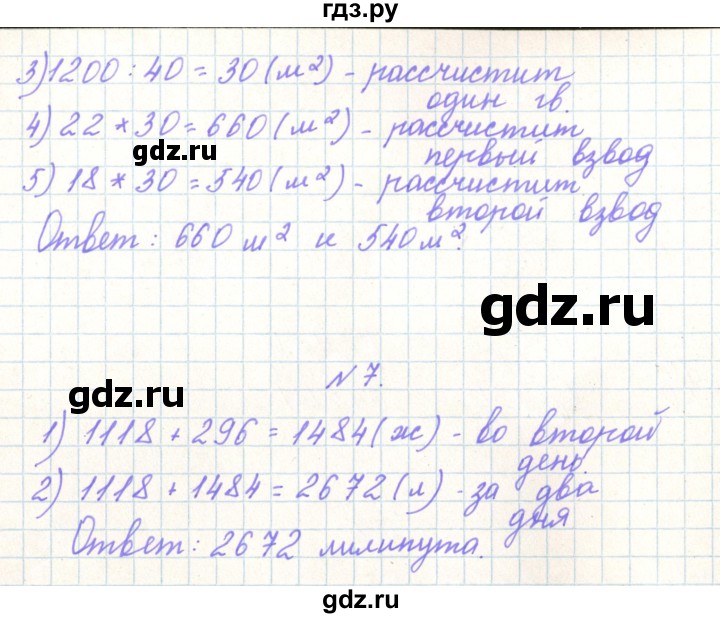 гдз.ру
3) 1200 : 40 = 30 (м²) - рассчистит
один гв.
4) 22 * 30 = 660 (м²) - рассчистит
gdz.ru
первый взвод
5) 18 * 30 = 540 (м²) - рассчистит
второй взвод
Ответ: 660 м² и 540 м².
gdz.ru
№ 7.
gdz.ru
1) 1118 + 296 = 1484 (ж) - во второй
день.
2) 1118 + 1484 = 2672 (л) - за два
gdz.ru
дня
Ответ: 2672 лилипута.
gdz.ru